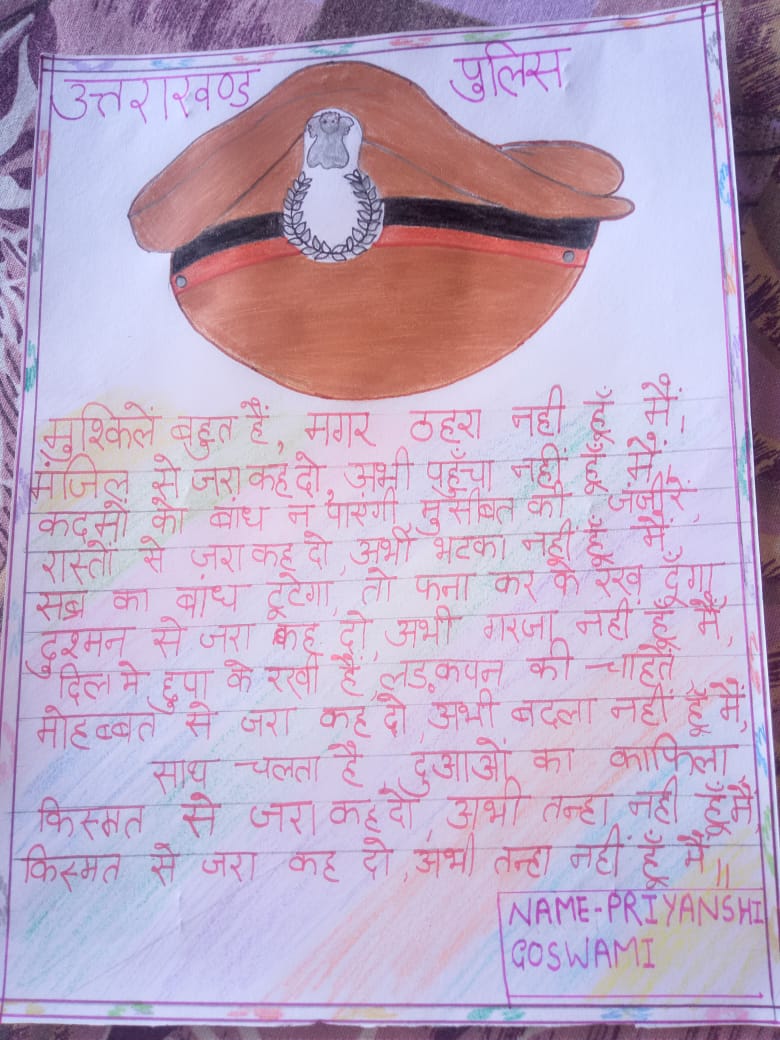 उत्तराखण्ड पुलिस
मुश्किलें बहुत हैं, मगर ठहरा नही हूँ मैं।
मंजिल से जरा कह दो, अभी पहुँचा नहीं हूँ मैं,
कदमों को बांध न पाएंगी, मुसीबत की जंजीरें,
रास्तों से जरा कह दो, अभी भटका नहीं हूँ मैं,
सब्र का बांध टूटेगा, तो फना कर के रख दूँगा
दुश्मन से जरा कह दो, अभी गरजा नहीं हूँ मैं,
दिल मे छुपा के रखी है, लड़कपन की चाहते
मोहब्बत से जरा कह दो, अभी बदला नहीं हूँ मैं,
साथ चलता है दुआओं का काफिला
किस्मत से जरा कह दो, अभी तन्हा नही हूँ मैं
किस्मत से जरा कह दो, अभी तन्हा नहीं हूँ मैं॥
NAME-PRIYANSHI
GOSWAMI